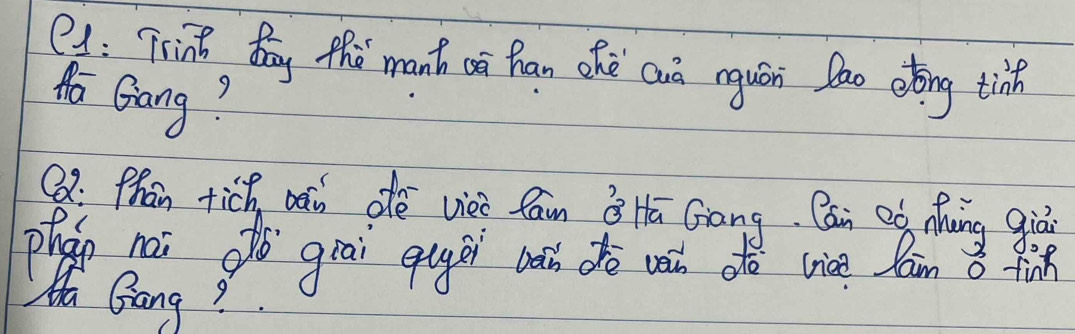 C1: Trình bày thế mạnh và hạn chế của nguồn lao động tỉnh
Hà Giang?
C2: Phân tích vấn đề việc làm ở Hà Giang. Cần có những giải
pháp nài để giải quyết vấn đề vấn đề việc làm ở tỉnh
Hà Giang?.